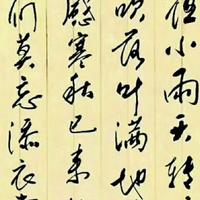 小雨天转
吹落叶满地
感寒秋已来
们莫忘添衣